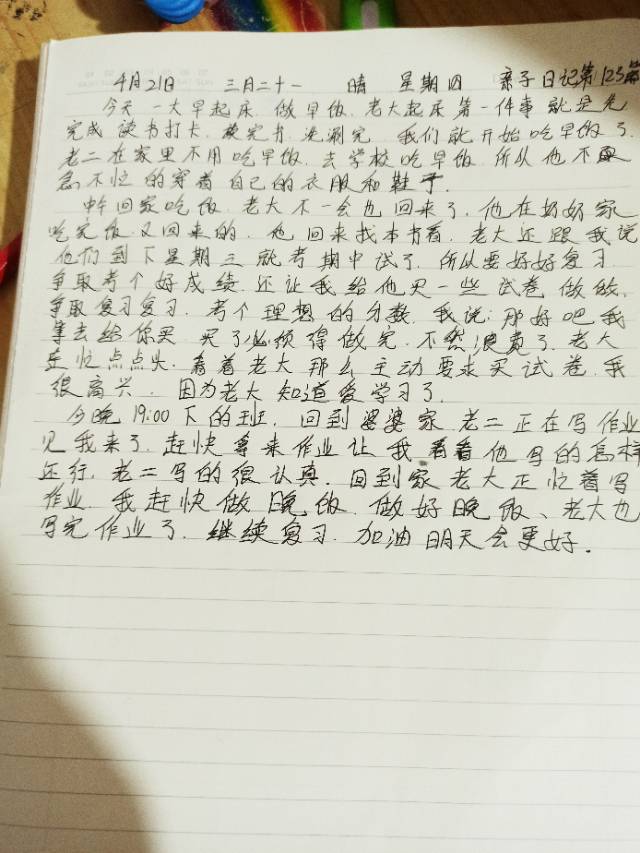 4月21日 三月二十一 晴 星期四 亲子日记第125篇
今天一大早起床.做早饭.老大起床第一件事就是先
完成读书打卡.读完书.洗涮完.我们就开始吃早饭了.
老二在家里不用吃早饭.去学校吃早饭.所以他不
急不忙的穿着自己的衣服和鞋子.
中午回家吃饭.老大不一会也回来了.他在奶奶家
吃完饭又回来的.他回来找本书看.老大还跟我说
他们到下星期三就考期中试了.所以要好好复习
争取考个好成绩.还让我给他买一些试卷做做.
争取复习复习.考个理想的分数.我说:那好吧我
拿去给你买.买了必须得做完.不然浪费了.老大
连忙点点头.看着老大那么主动要求买试卷.我
很高兴.因为老大知道爱学习了.
今晚19:00下的班.回到婆婆家.老二正在写作业
见我来了.赶快拿来作业让我看看他写的怎样
还行.老二写的很认真.回到家老大正忙着写
作业.我赶快做晚饭.做好晚饭、老大也
写完作业了.继续复习.加油明天会更好.